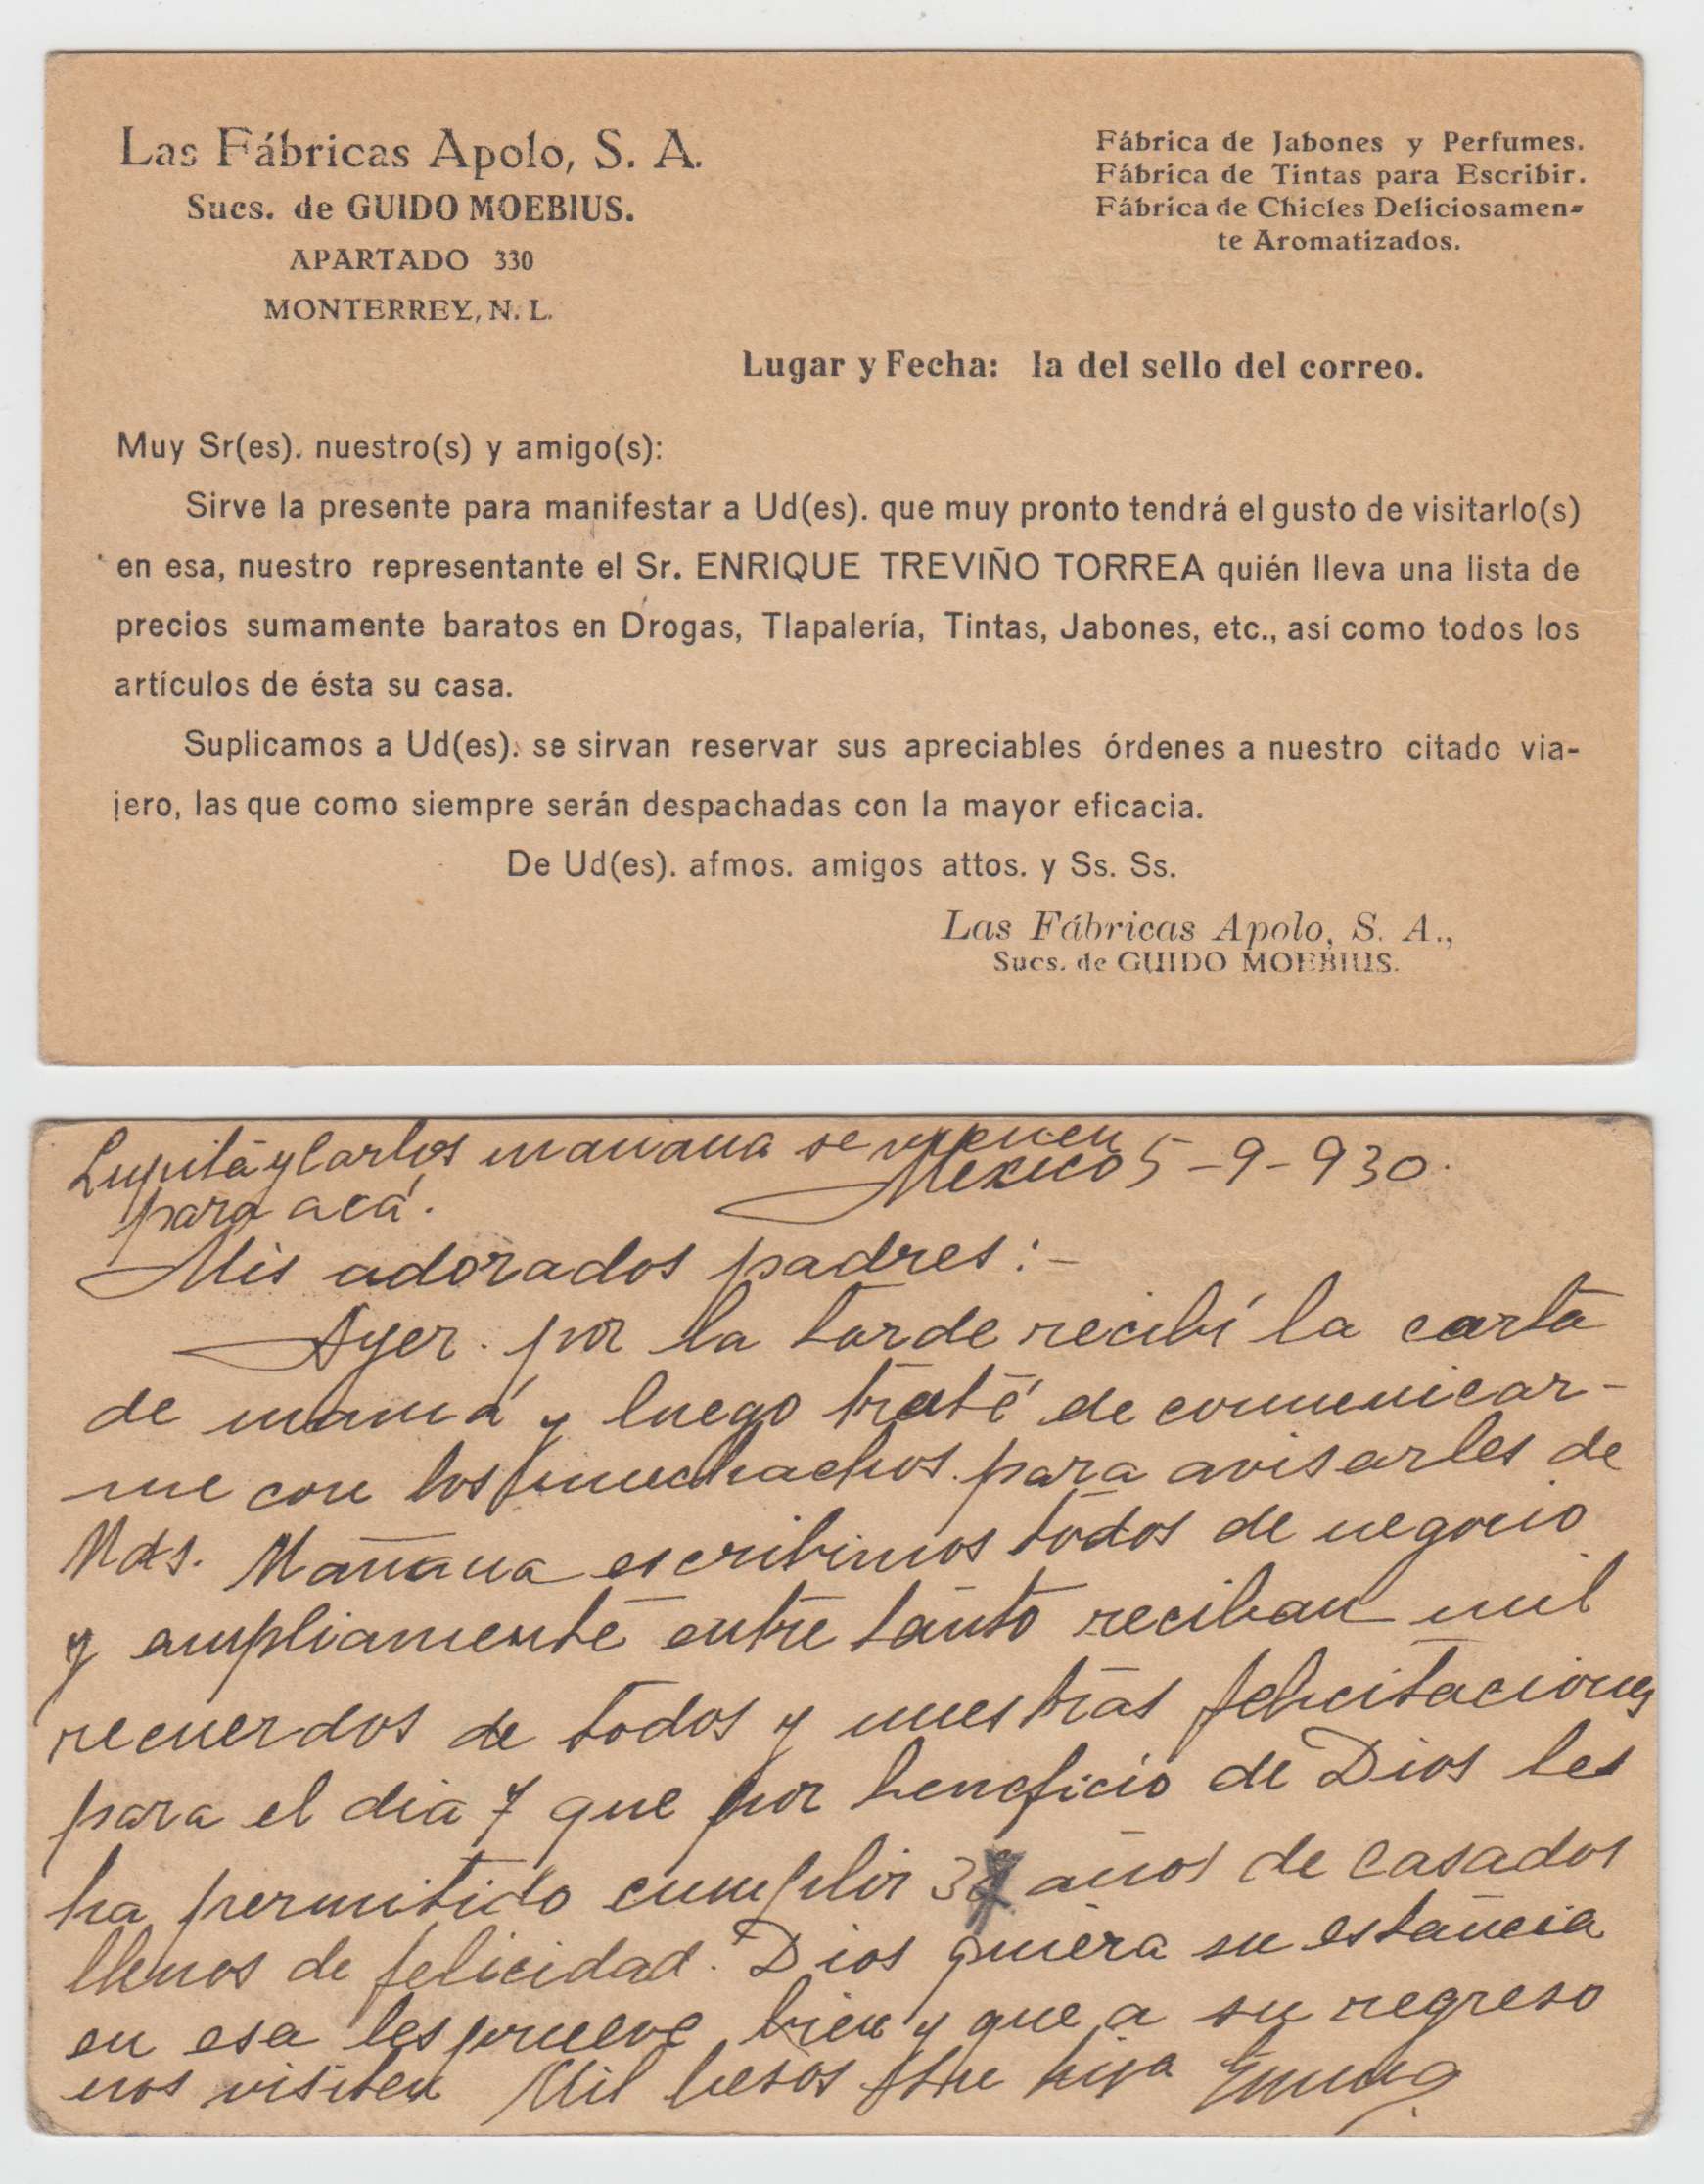 Las Fábricas Apolo, S. A.
Sucs. de GUIDO MOEBIUS.
APARTADO 330
MONTERREY, N. L.
Fábrica de Jabones y Perfumes.
Fábrica de Tintas para Escribir.
Fábrica de Chicles Deliciosamen-
te Aromatizados.
Lugar y Fecha: la del sello del correo.
Muy Sr(es). nuestro(s) y amigo(s):
Sirve la presente para manifestar a Ud(es). que muy pronto tendrá el gusto de visitarlo(s)
en esa, nuestro representante el Sr. ENRIQUE TREVIÑO TORREA quién lleva una lista de
precios sumamente baratos en Drogas, Tlapalería, Tintas, Jabones, etc., así como todos los
artículos de ésta su casa.
Suplicamos a Ud(es). se sirvan reservar sus apreciables órdenes a nuestro citado via-
jero, las que como siempre serán despachadas con la mayor eficacia.
De Ud(es). afmos. amigos attos. y Ss. Ss.
Las Fábricas Apolo, S. A.,
Sucs. de GUIDO MOEBIUS.
Lupita y Carlos manana se vienen
para acá.
Mexico 5-9-930.
Mis adorados padres:-
Ayer por la tarde recibí la carta
de mamá y luego traté de comunicar-
me con los muchachos para avisarles de
Uds. Mañana escribimos todos de negocio
y ampliamente entre tanto reciban mil
recuerdos de todos y nuestras felicitaciones
para el dia 7 que por beneficio de Dios les
ha permitido cumplir años de casados
llenos de felicidad. Dios quiera su estancia
en esa les prueve bien y que a su regreso
nos visiten Mil besos su hija